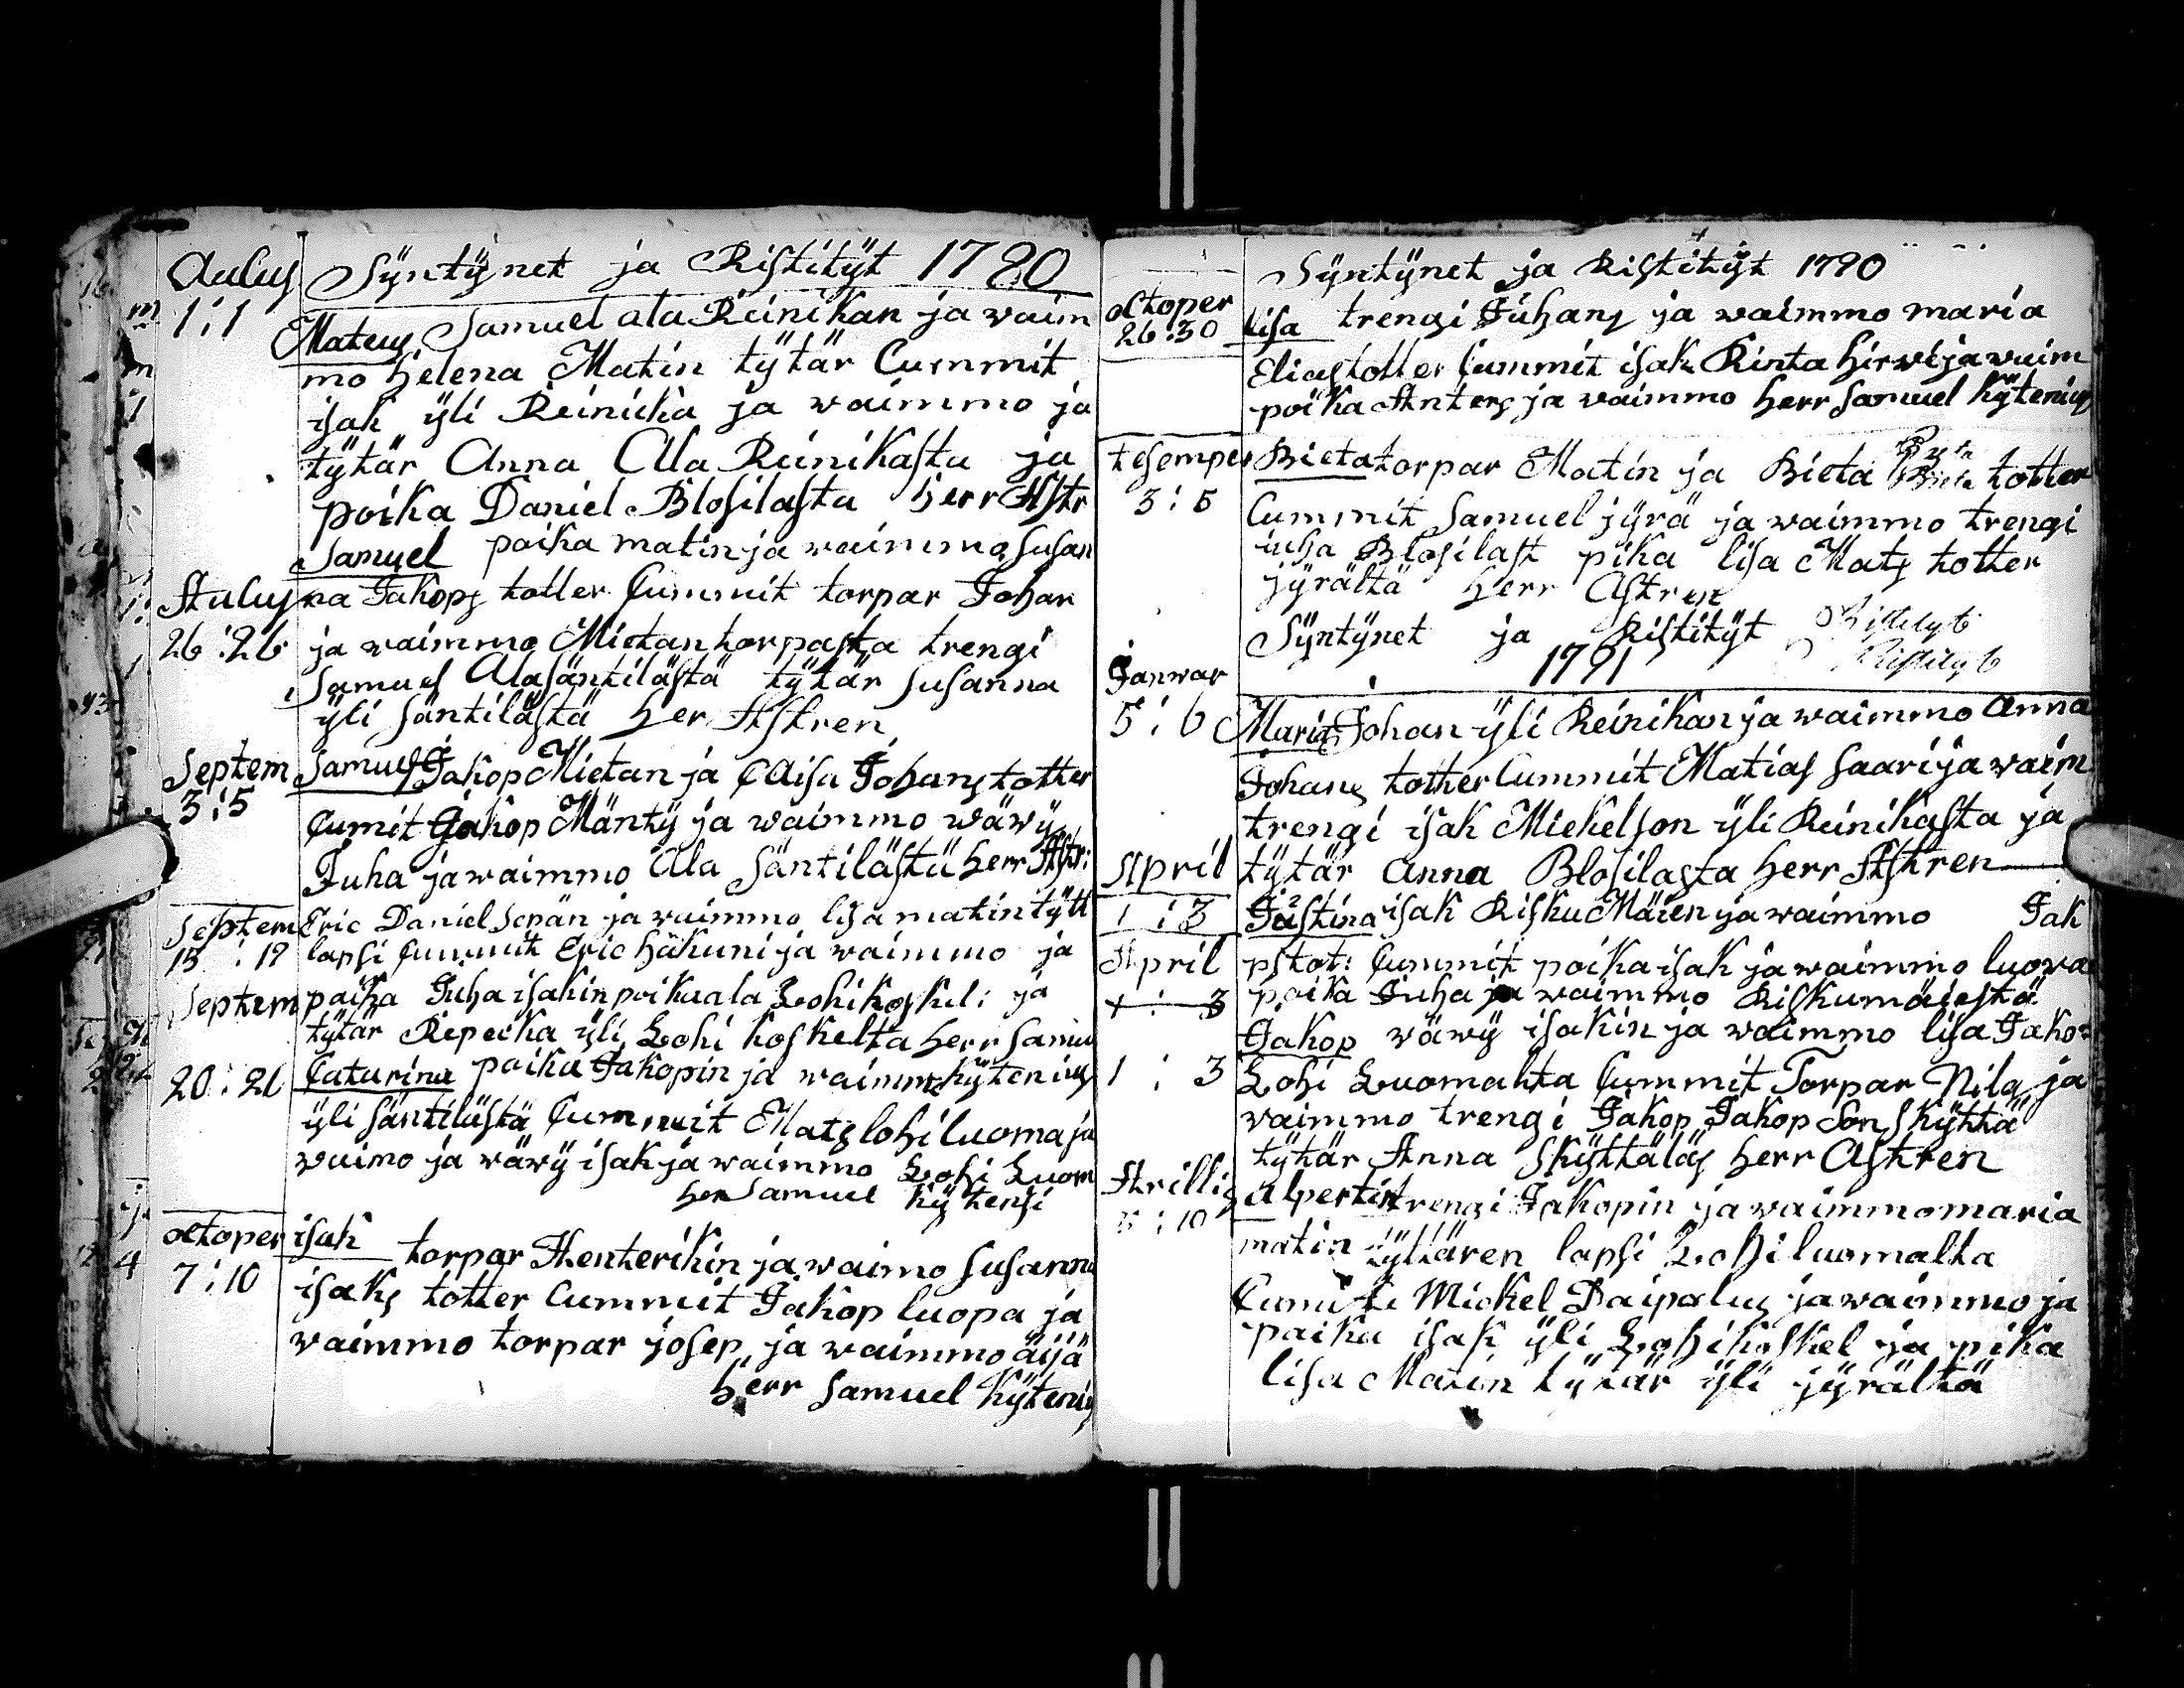 Aulus Syntÿnet ja Ristitÿt 1790
1:1 Mateus Samuel ala Reinikan ja waim
mo helena Matin tÿtär Cummit
isak ÿli Reinicka ja waimmo ja
tÿtär Anna Ala Reinikasta ja
poika Daniel Blosilasta herr Astr
Samuel poika matin ja waimmo susan
Aulus na Jakops totter Cummit torpar Johan
26:26 ja waimmo Mietan torpasta trengi
Samuel Alasäntilästä tÿtär susanna
ÿli säntilästä her Astren
Septem Samuel Jakop Mietan ja Caisa Johans totter
3:5 Cumit Jakop Mäntÿ ja waimmo wäwÿ
Juha ja waimmo Ala säntilästä herr Astr:
Septem Eric Daniel sepän ja waimmo lisa matin tÿtt
15:19 lapsi Cummit Eric häkuni ja waimmo ja
Septem paika Juha isakin poika ala Lohikoskel: ja
tÿtär Repecka ÿli Lohi koskelta herr Samu
20:26 Caturina paika Jakopin ja waimmo hÿtenius
ÿli säntilästä Cummit Mats lohiluoma ja
waimo ja wäwÿ isak ja waimmo Lohi Luom
her Samuel hÿtensi
octoper isak torpar Henterikin ja waimo susanna
7:10 isaks totter Cummit Jakop luopa ja
waimmo torpar josep ja waimmo äijä
herr samuel hÿtenius
Syntÿnet ja Ristitÿt 1790
octoper
26:30 lisa trengi Juhans ja waimmo maria
Elias totter Cummit isak Rinta hirwi ja waim
poika Anters ja waimmo herr samuel hÿtenius
tesemper Bieta torpar Matin ja Bieta totter
3:5 Cummit Samuel jÿrä ja waimmo trengi
iuha Blosilast pika lisa Mats totter
jÿrältä herr Astren
Syntÿnet ja Ristitÿt
1791
Janwar
5:6 Maria Johan ÿli Reinikan ja waimmo Anna
Johans totter Cummit Matias saari ja waim
trengi isak Mickelson ÿli Reinikasta ja
April tÿtär Anna Blosilasta herr Astren
1:3 Justina isak Risku Mäien ja waimmo Jak
April pstot: Cummit poika isak ja waimmo luowa
1:3 poika Juha ja waimmo Riskumäiestä
Jakop wäwÿ isakin ja waimmo lisa Jako:
1:3 Lohi Luomalta Cummit Torpar Nils ja
waimmo trengi Jakop Jakop son skÿttä
tÿtär Anna skÿttäläs herr Astren
Aprillis Alpertin trengi Jakopin ja waimmo maria
:10 matin tÿttären lapsi Lohiluomalta
Cumit Mickel Daipalus ja waimmo ja
paika isak ÿli Lohikoskel ja pika
lisa Matin tÿtär ÿli jÿrältä